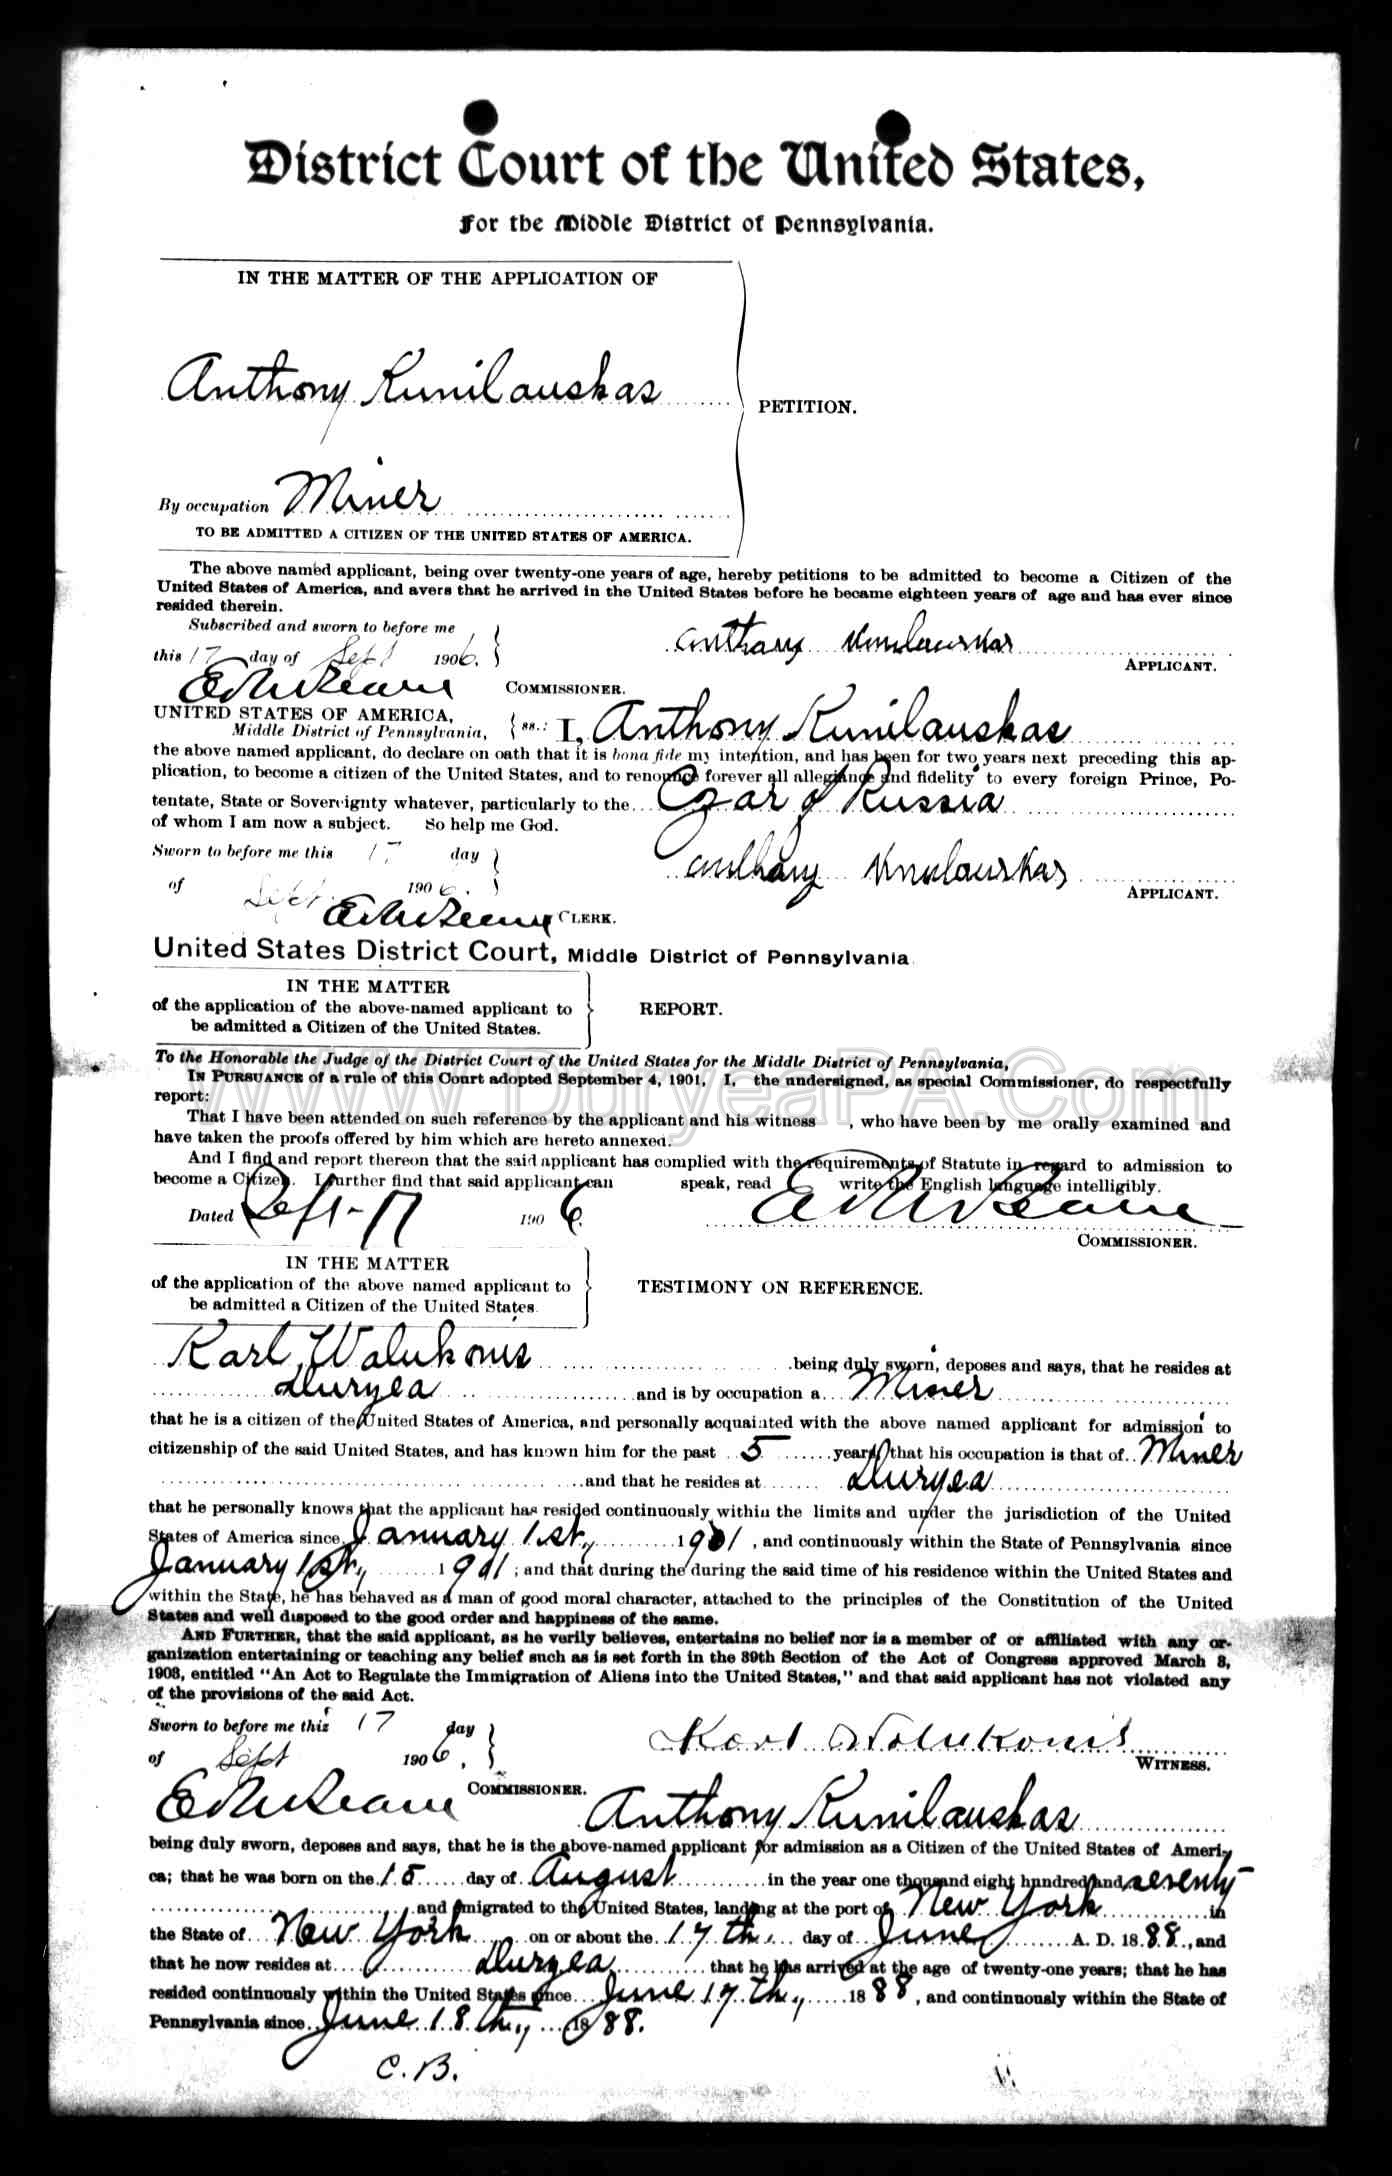 District Court of the United States,
For the Middle District of Pennsylvania.
IN THE MATTER OF THE APPLICATION OF
Anthony Kunilauskas
PETITION.
By occupation Miner
TO BE ADMITTED A CITIZEN OF THE UNITED STATES OF AMERICA.
The above named applicant, being over twenty-one years of age, hereby petitions to be admitted to become a Citizen of the
United States of America, and avers that he arrived in the United States before he became eighteen years of age and has ever since
resided therein.
Subscribed and sworn to before me
this 17 day of Sept 1906.
anthany
APPLICANT.
COMMISSIONER.
UNITED STATES OF AMERICA,
Middle District of Pennsylvania, ss.: I, Anthony Kunilauskas
the above named applicant, do declare on oath that it is bona fide my intention, and has been for two years next preceding this ap-
plication, to become a citizen of the United States, and to renounce forever all allegiance and fidelity to every foreign Prince, Po-
tentate, State or Sovereignty whatever, particularly to the Czar of Russia
of whom I am now a subject. So help me God.
Sworn to before me this 17 day
of Sept. 1906.
anthany
APPLICANT.
CLERK.
United States District Court, Middle District of Pennsylvania
IN THE MATTER
of the application of the above-named applicant to
be admitted a Citizen of the United States.
REPORT.
To the Honorable the Judge of the District Court of the United States for the Middle District of Pennsylvania,
IN PURSUANCE of a rule of this Court adopted September 4, 1901, I, the undersigned, as special Commissioner, do respectfully
report:
WWW.DuryeaPA.Com
That I have been attended on such reference by the applicant and his witness , who have been by me orally examined and
have taken the proofs offered by him which are hereto annexed.
And I find and report thereon that the said applicant has complied with the requirements of Statute in regard to admission to
become a Citizen. I further find that said applicant can speak, read write the English language intelligibly.
Dated Sept-17 1906.
COMMISSIONER.
IN THE MATTER
of the application of the above named applicant to
be admitted a Citizen of the United States.
TESTIMONY ON REFERENCE.
Karl Walukonis being duly sworn, deposes and says, that he resides at
Duryea and is by occupation a Miner
that he is a citizen of the United States of America, and personally acquainted with the above named applicant for admission to
citizenship of the said United States, and has known him for the past 5 years, that his occupation is that of Miner
and that he resides at Duryea
that he personally knows that the applicant has resided continuously within the limits and under the jurisdiction of the United
States of America since January 1st, 1901, and continuously within the State of Pennsylvania since
January 1st, 1901; and that during the during the said time of his residence within the United States and
within the State, he has behaved as a man of good moral character, attached to the principles of the Constitution of the United
States and well disposed to the good order and happiness of the same.
AND FURTHER, that the said applicant, as he verily believes, entertains no belief nor is a member of or affiliated with any or-
ganization entertaining or teaching any belief such as is set forth in the 39th Section of the Act of Congress approved March 3,
1903, entitled "An Act to Regulate the Immigration of Aliens into the United States," and that said applicant has not violated any
of the provisions of the said Act.
Sworn to before me this 17 day
of Sept 1906.
Karl Wolukonis
WITNESS.
COMMISSIONER.
Anthony Kunilauskas
being duly sworn, deposes and says, that he is the above-named applicant for admission as a Citizen of the United States of Ameri-
ca; that he was born on the 15 day of August in the year one thousand eight hundred and seventy
and emigrated to the United States, landing at the port of New York in
the State of New York on or about the 17th day of June A. D. 1888, and
that he now resides at Duryea that he has arrived at the age of twenty-one years; that he has
resided continuously within the United States since June 17th, 1888, and continuously within the State of
Pennsylvania since June 18th, 1888.
C.B.